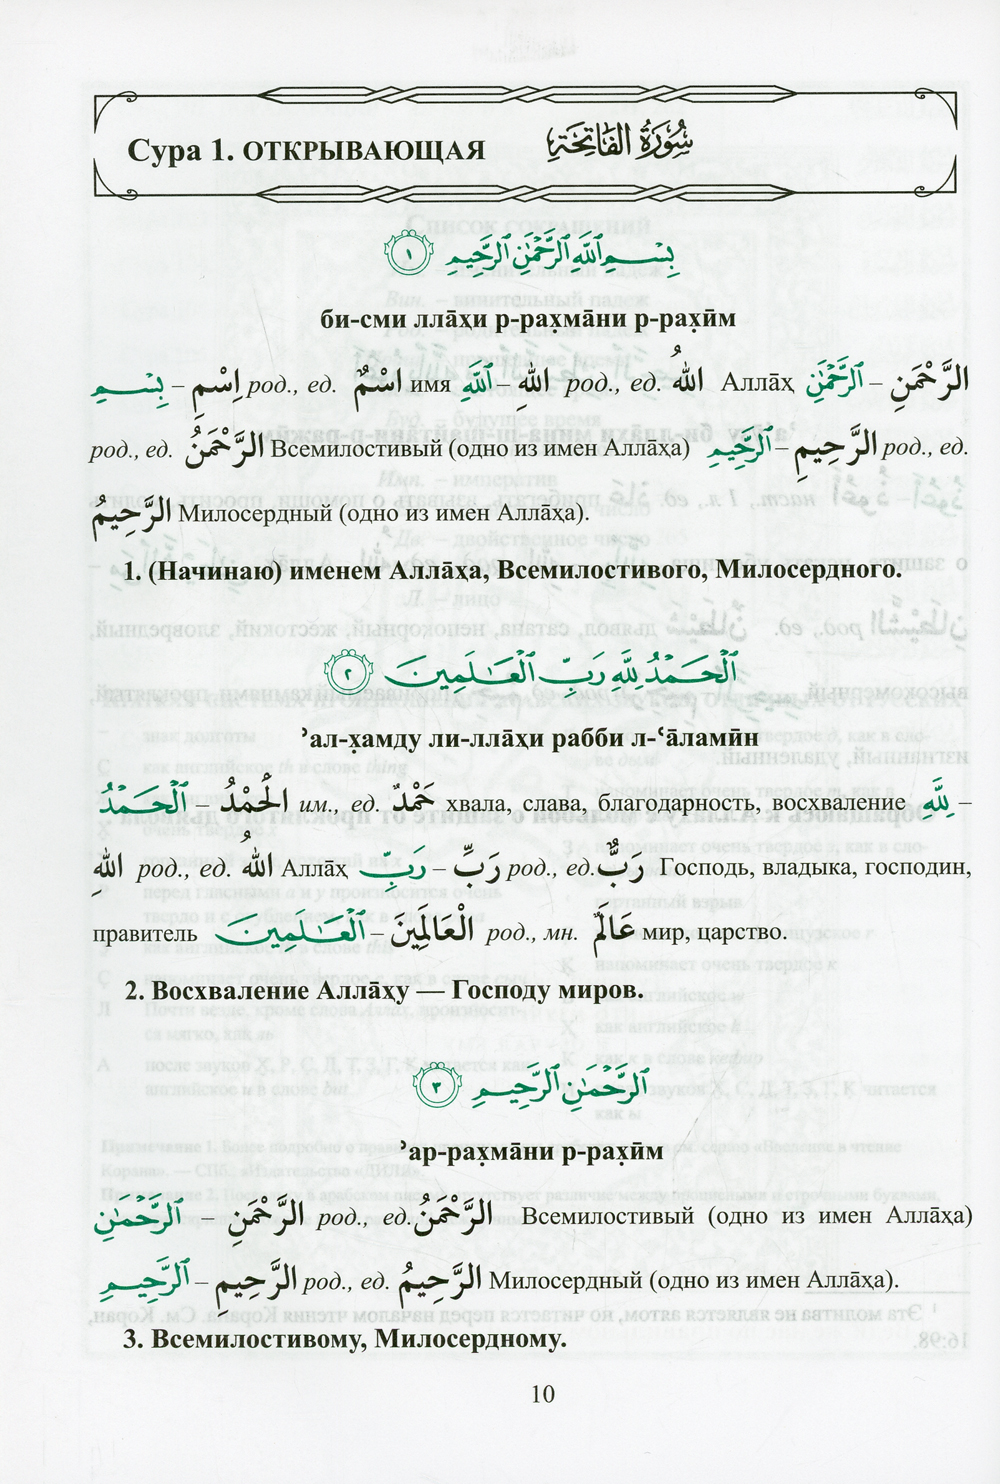 Сура 1. ОТКРЫВАЮЩАЯ سُورَةُ الفَاتِحَةِ
بِسْمِ ٱللَّهِ ٱلرَّحْمَٰنِ ٱلرَّحِيمِ ١
би-сми лла̄х̣и р-рах̣ма̄ни р-рах̣ӣм
بِسْمِ – اِسْمِ род., ед. اسْمٌ имя ٱللَّهِ – اللهِ род., ед. اللهُ Алла̄х̣ ٱلرَّحْمَٰنِ – الرَّحْمَنِ
род., ед. الرَّحْمَنُ Всемилостивый (одно из имен Алла̄х̣а) ٱلرَّحِيمِ – الرَّحِيمِ род., ед.
الرَّحِيمُ Милосердный (одно из имен Алла̄х̣а).
1. (Начинаю) именем Алла̄х̣а, Всемилостивого, Милосердного.
ٱلْحَمْدُ لِلَّهِ رَبِّ ٱلْعَٰلَمِينَ ٢
ʼал-х̣амду ли-лла̄х̣и рабби л-ʻа̄ламӣн
ٱلْحَمْدُ – الْحَمْدُ им., ед. حَمْدٌ хвала, слава, благодарность, восхваление لِلَّهِ –
اللهِ род., ед. اللهُ Алла̄х̣ رَبِّ – رَبِّ род., ед. رَبٌّ Господь, владыка, господин,
правитель ٱلْعَٰلَمِينَ – الْعَالَمِينَ род., мн. عَالَمٌ мир, царство.
2. Восхваление Алла̄х̣у — Господу миров.
ٱلرَّحْمَٰنِ ٱلرَّحِيمِ ٣
ʼар-рах̣ма̄ни р-рах̣ӣм
ٱلرَّحْمَٰنِ – الرَّحْمَنِ род., ед. الرَّحْمَنُ Всемилостивый (одно из имен Алла̄х̣а)
ٱلرَّحِيمِ – الرَّحِيمِ род., ед. الرَّحِيمُ Милосердный (одно из имен Алла̄х̣а).
3. Всемилостивому, Милосердному.
10